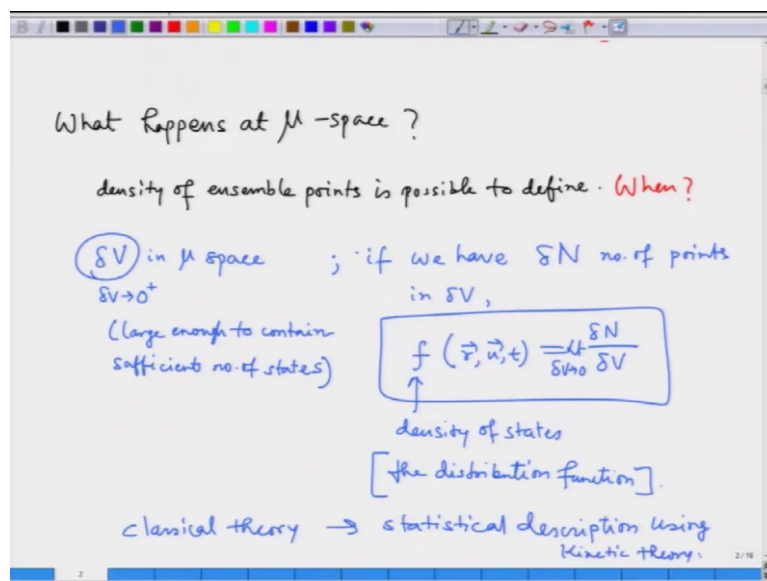 B I
What happens at μ-space?
density of ensemble points is possible to define. When?
δV in μ space ; if we have δN no. of points
δV→0⁺ in δV,
(large enough to contain
sufficient no. of states)
f (r⃗, u⃗, t) = lt δV→0 δN/δV
density of states
[the distribution function].
classical theory → statistical description using
Kinetic theory.
2/16
2